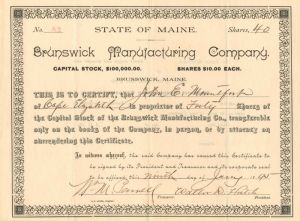 No.
STATE OF MAINE.
Shares, 40
Brunswick Manufacturing Company.
CAPITAL STOCK, $100,000.00. SHARES $10.00 EACH.
BRUNSWICK, MAINE.
THIS IS TO CERTIFY, that John E. Mountfort
of Cape Elizabeth is proprietor of Forty Shares of
the Capital Stock of the Brunswick Manufacturing Co., transferable
only on the books of the Company, in person, or by attorney on
surrendering this Certificate.
In witness whereof, the said Company has caused this Certificate to
be signed by its President and Treasurer and its corporate seal
to be affixed, this day of
Treasurer. President.